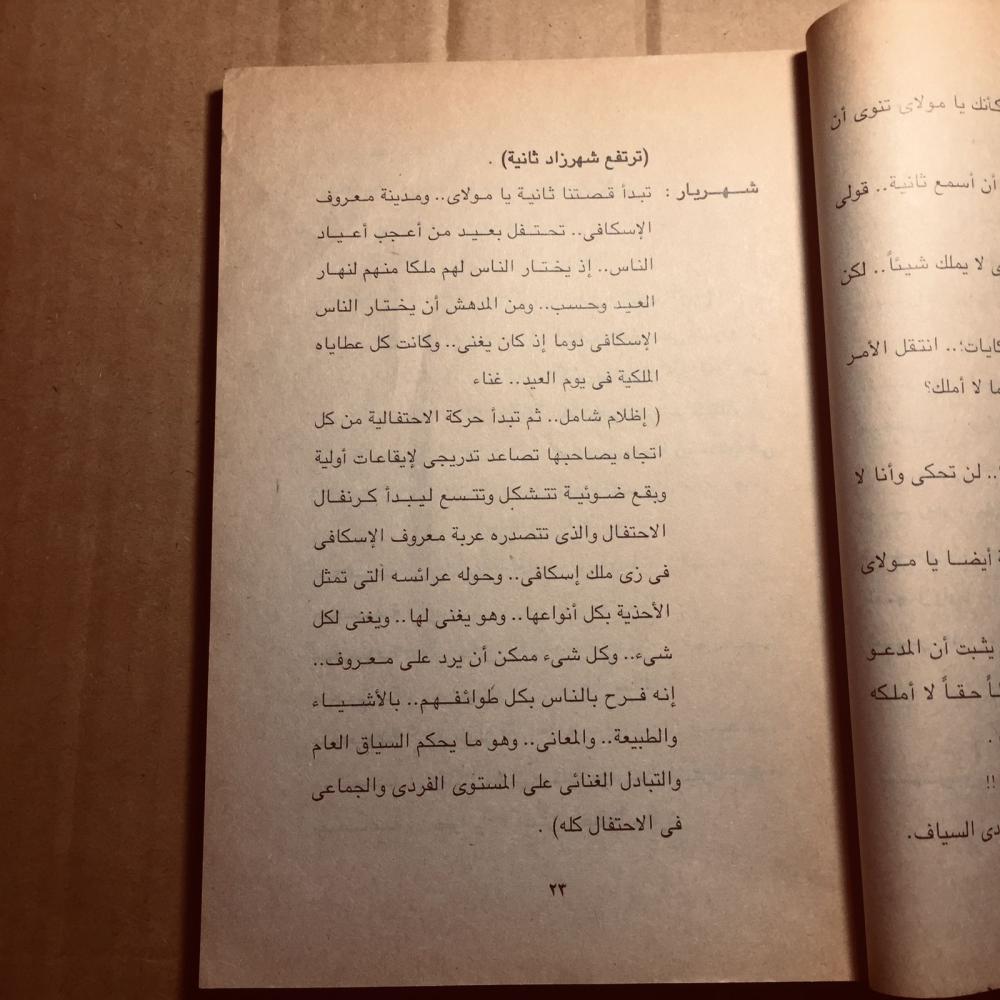 كأنك يا مولاى تنوى أن
أن أسمع ثانية.. قولى
لا يملك شيئاً.. لكن
انتقل الأمر
ما لا أملك؟
.. لن تحكى وأنا لا
أيضا يا مولاى
يثبت أن المدعو
حقاً لا أملكه
.
!!
السياف.
(ترتفع شهرزاد ثانية) .
شهريار : تبدأ قصتنا ثانية يا مولاى.. ومدينة معروف
الإسكافى.. تحتفل بعيد من أعجب أعياد
الناس.. إذ يختار الناس لهم ملكا منهم لنهار
العيد وحسب.. ومن المدهش أن يختار الناس
الإسكافى دوما إذ كان يغنى.. وكانت كل عطاياه
الملكية فى يوم العيد.. غناء
( إظلام شامل.. ثم تبدأ حركة الاحتفالية من كل
اتجاه يصاحبها تصاعد تدريجى لإيقاعات أولية
وبقع ضوئية تتشكل وتتسع ليبدأ كرنفال
الاحتفال والذى تتصدره عربة معروف الإسكافى
فى زى ملك إسكافى.. وحوله عرائسه التى تمثل
الأحذية بكل أنواعها.. وهو يغنى لها.. ويغنى لكل
شىء.. وكل شىء ممكن أن يرد على معروف..
إنه فرح بالناس بكل طوائفهم.. بالأشياء
والطبيعة.. والمعانى.. وهو ما يحكم السياق العام
والتبادل الغنائى على المستوى الفردى والجماعى
فى الاحتفال كله) .
٢٣